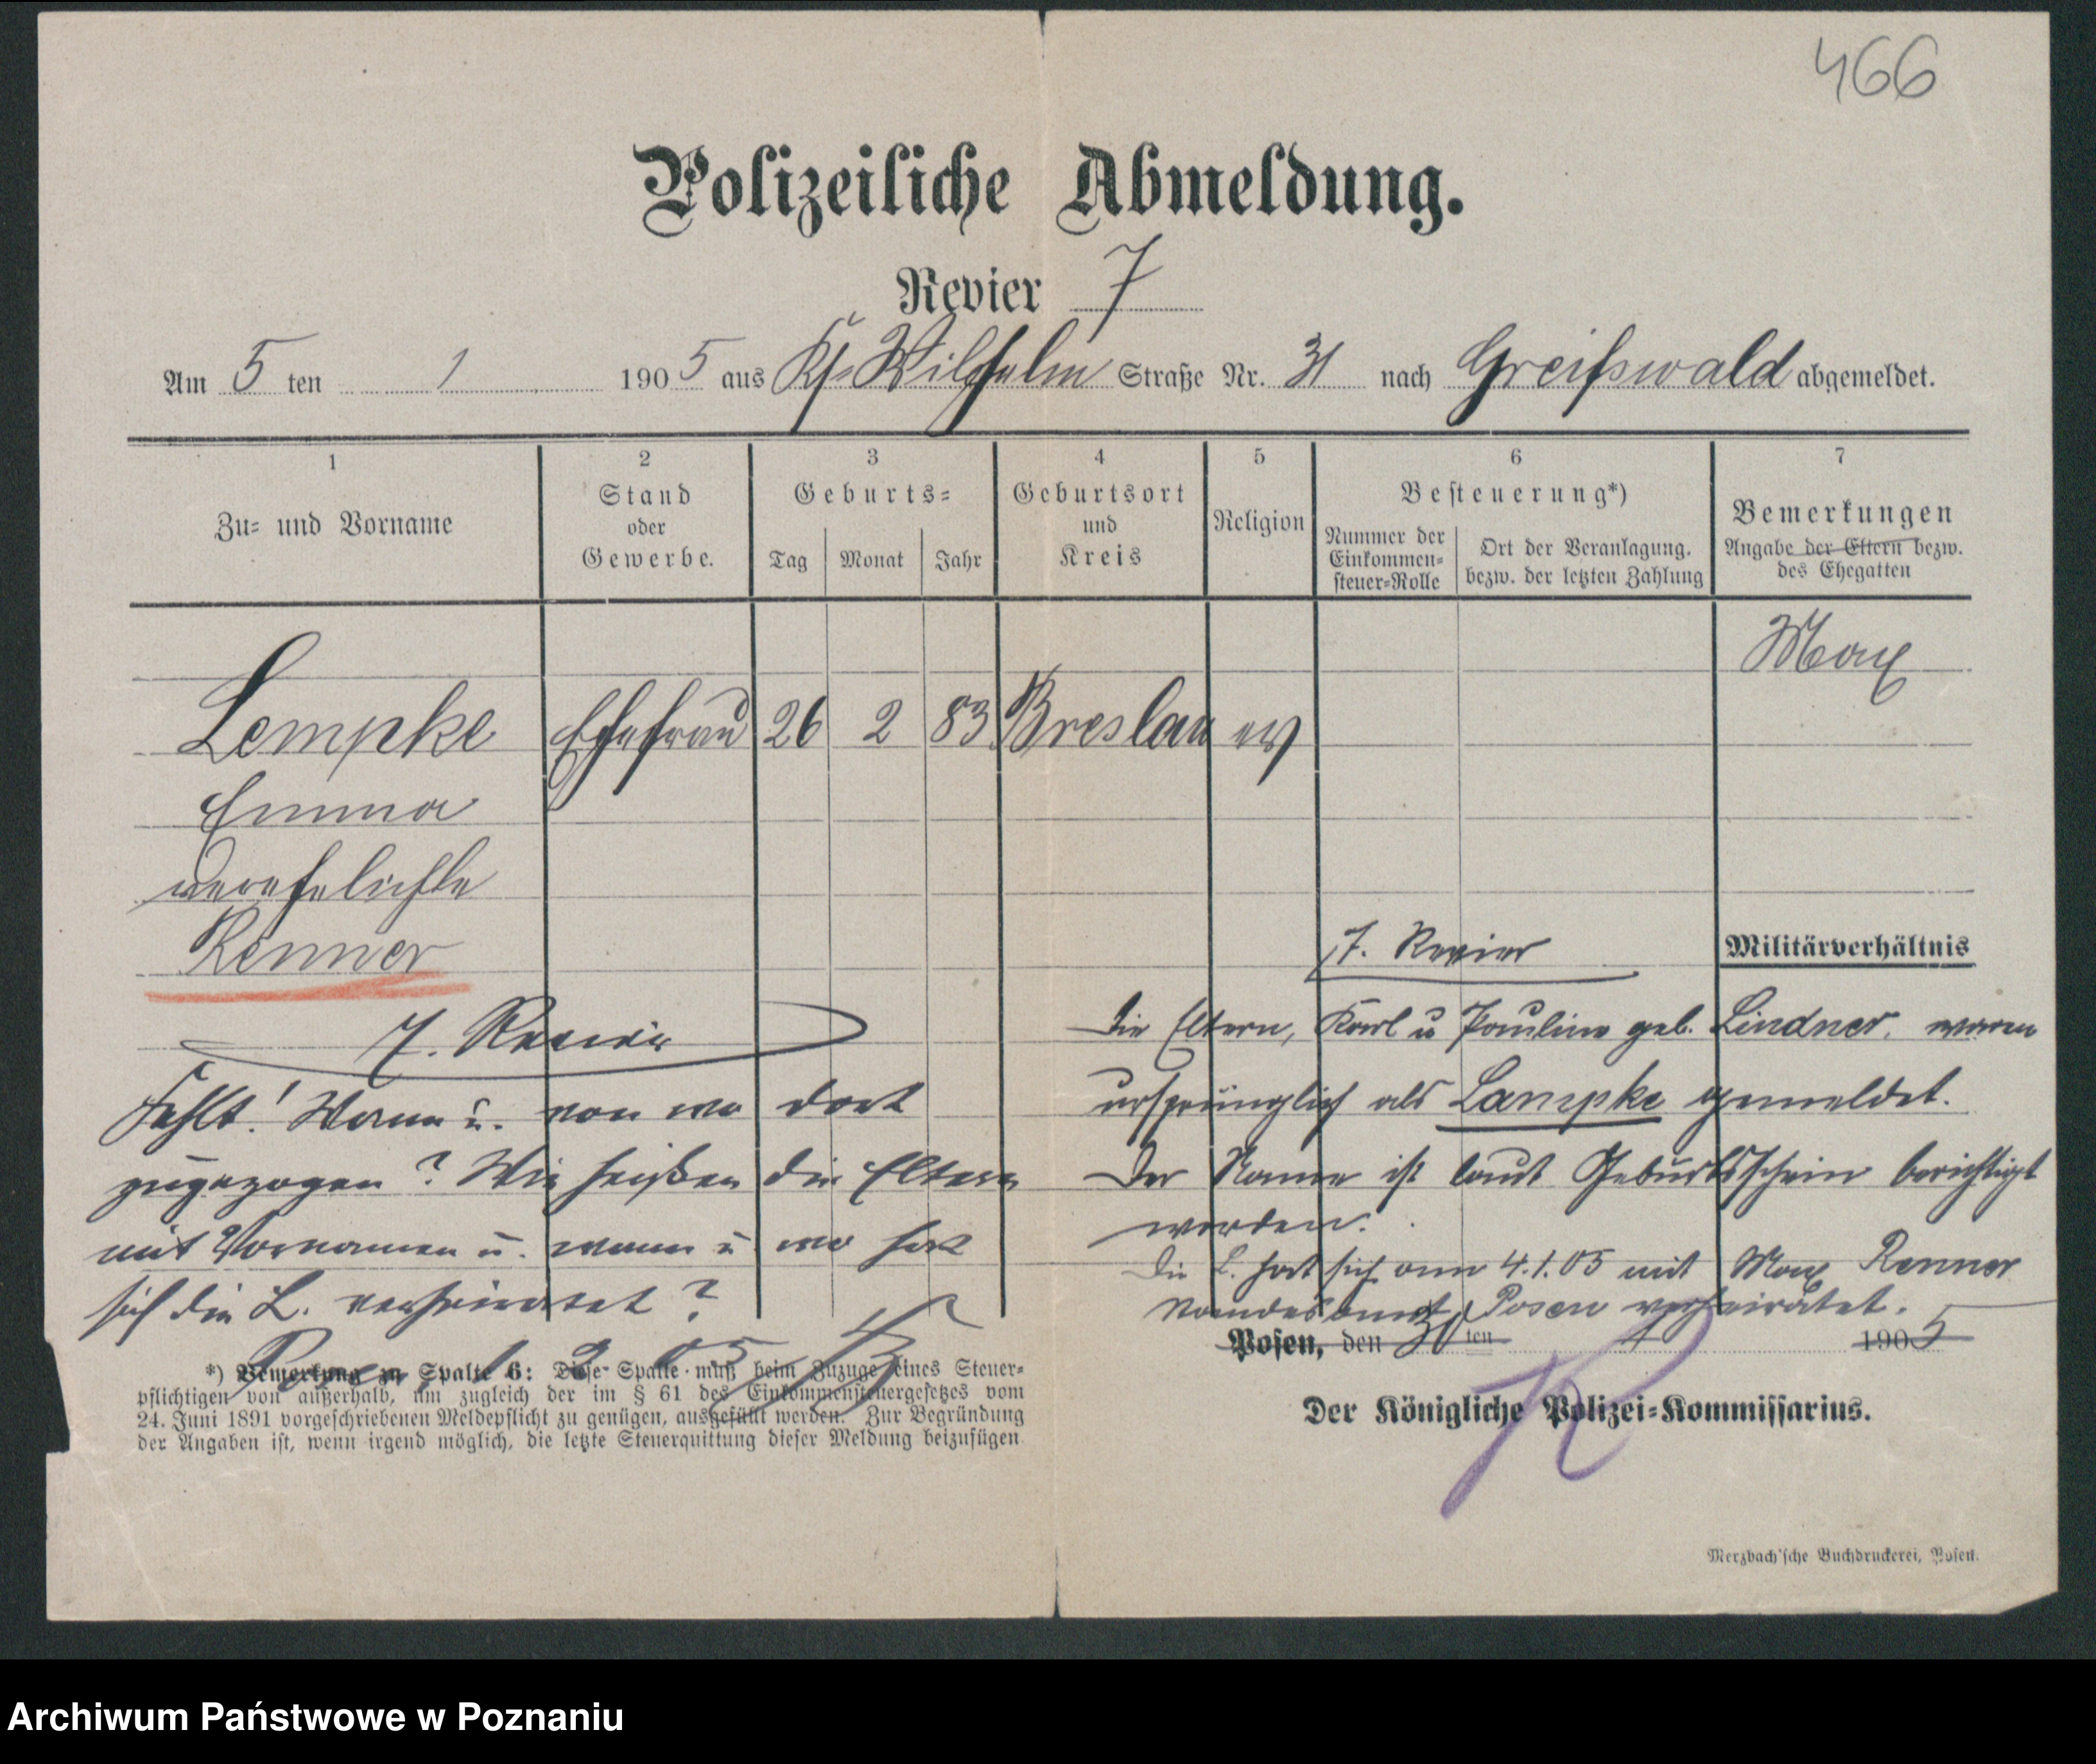 466
Polizeiliche Abmeldung.
Revier 7
Am 5 ten 1 1905 aus Kf. Wilhelm Straße Nr. 31 nach Greifswald abgemeldet.
1 2 3 4 5 6 7
Zu- und Vorname
Stand oder Gewerbe.
Geburts-
Tag Monat Jahr
Geburtsort und Kreis
Religion
Besteuerung*)
Nummer der Einkommen-steuer-Rolle
Ort der Veranlagung. bezw. der letzten Zahlung
Bemerkungen
Angabe der Eltern bezw. des Ehegatten
Max
Lempke Ehefrau 26 2 83 Breslau ev
Emma
verehelichte
Renner
7. Revier
Fehlt! Wann u. von wo dort
zugezogen? Wie heißen die Eltern
mit Vornamen u. wann u. wo hat
sich die L. verheiratet?
*) Bemerkung zu Spalte 6: Diese Spalte muß beim Zuzuge eines Steuer-
pflichtigen von außerhalb, um zugleich der im § 61 des Einkommensteuergesetzes vom
24. Juni 1891 vorgeschriebenen Meldepflicht zu genügen, ausgefüllt werden. Zur Begründung
der Angaben ist, wenn irgend möglich, die letzte Steuerquittung dieser Meldung beizufügen
7. Revier
Militärverhältnis
Die Eltern, Karl u Pauline geb. Lindner, waren
ursprünglich als Lampke gemeldet.
Der Name ist laut Geburtsschein berichtigt
worden.
Die L. hat sich am 4.1.05 mit Max Renner
Standesamt Posen verheiratet.
Posen, den 30 ten 1905
Der Königliche Polizei-Kommissarius.
Merzbach'sche Buchdruckerei, Posen.
Archiwum Państwowe w Poznaniu